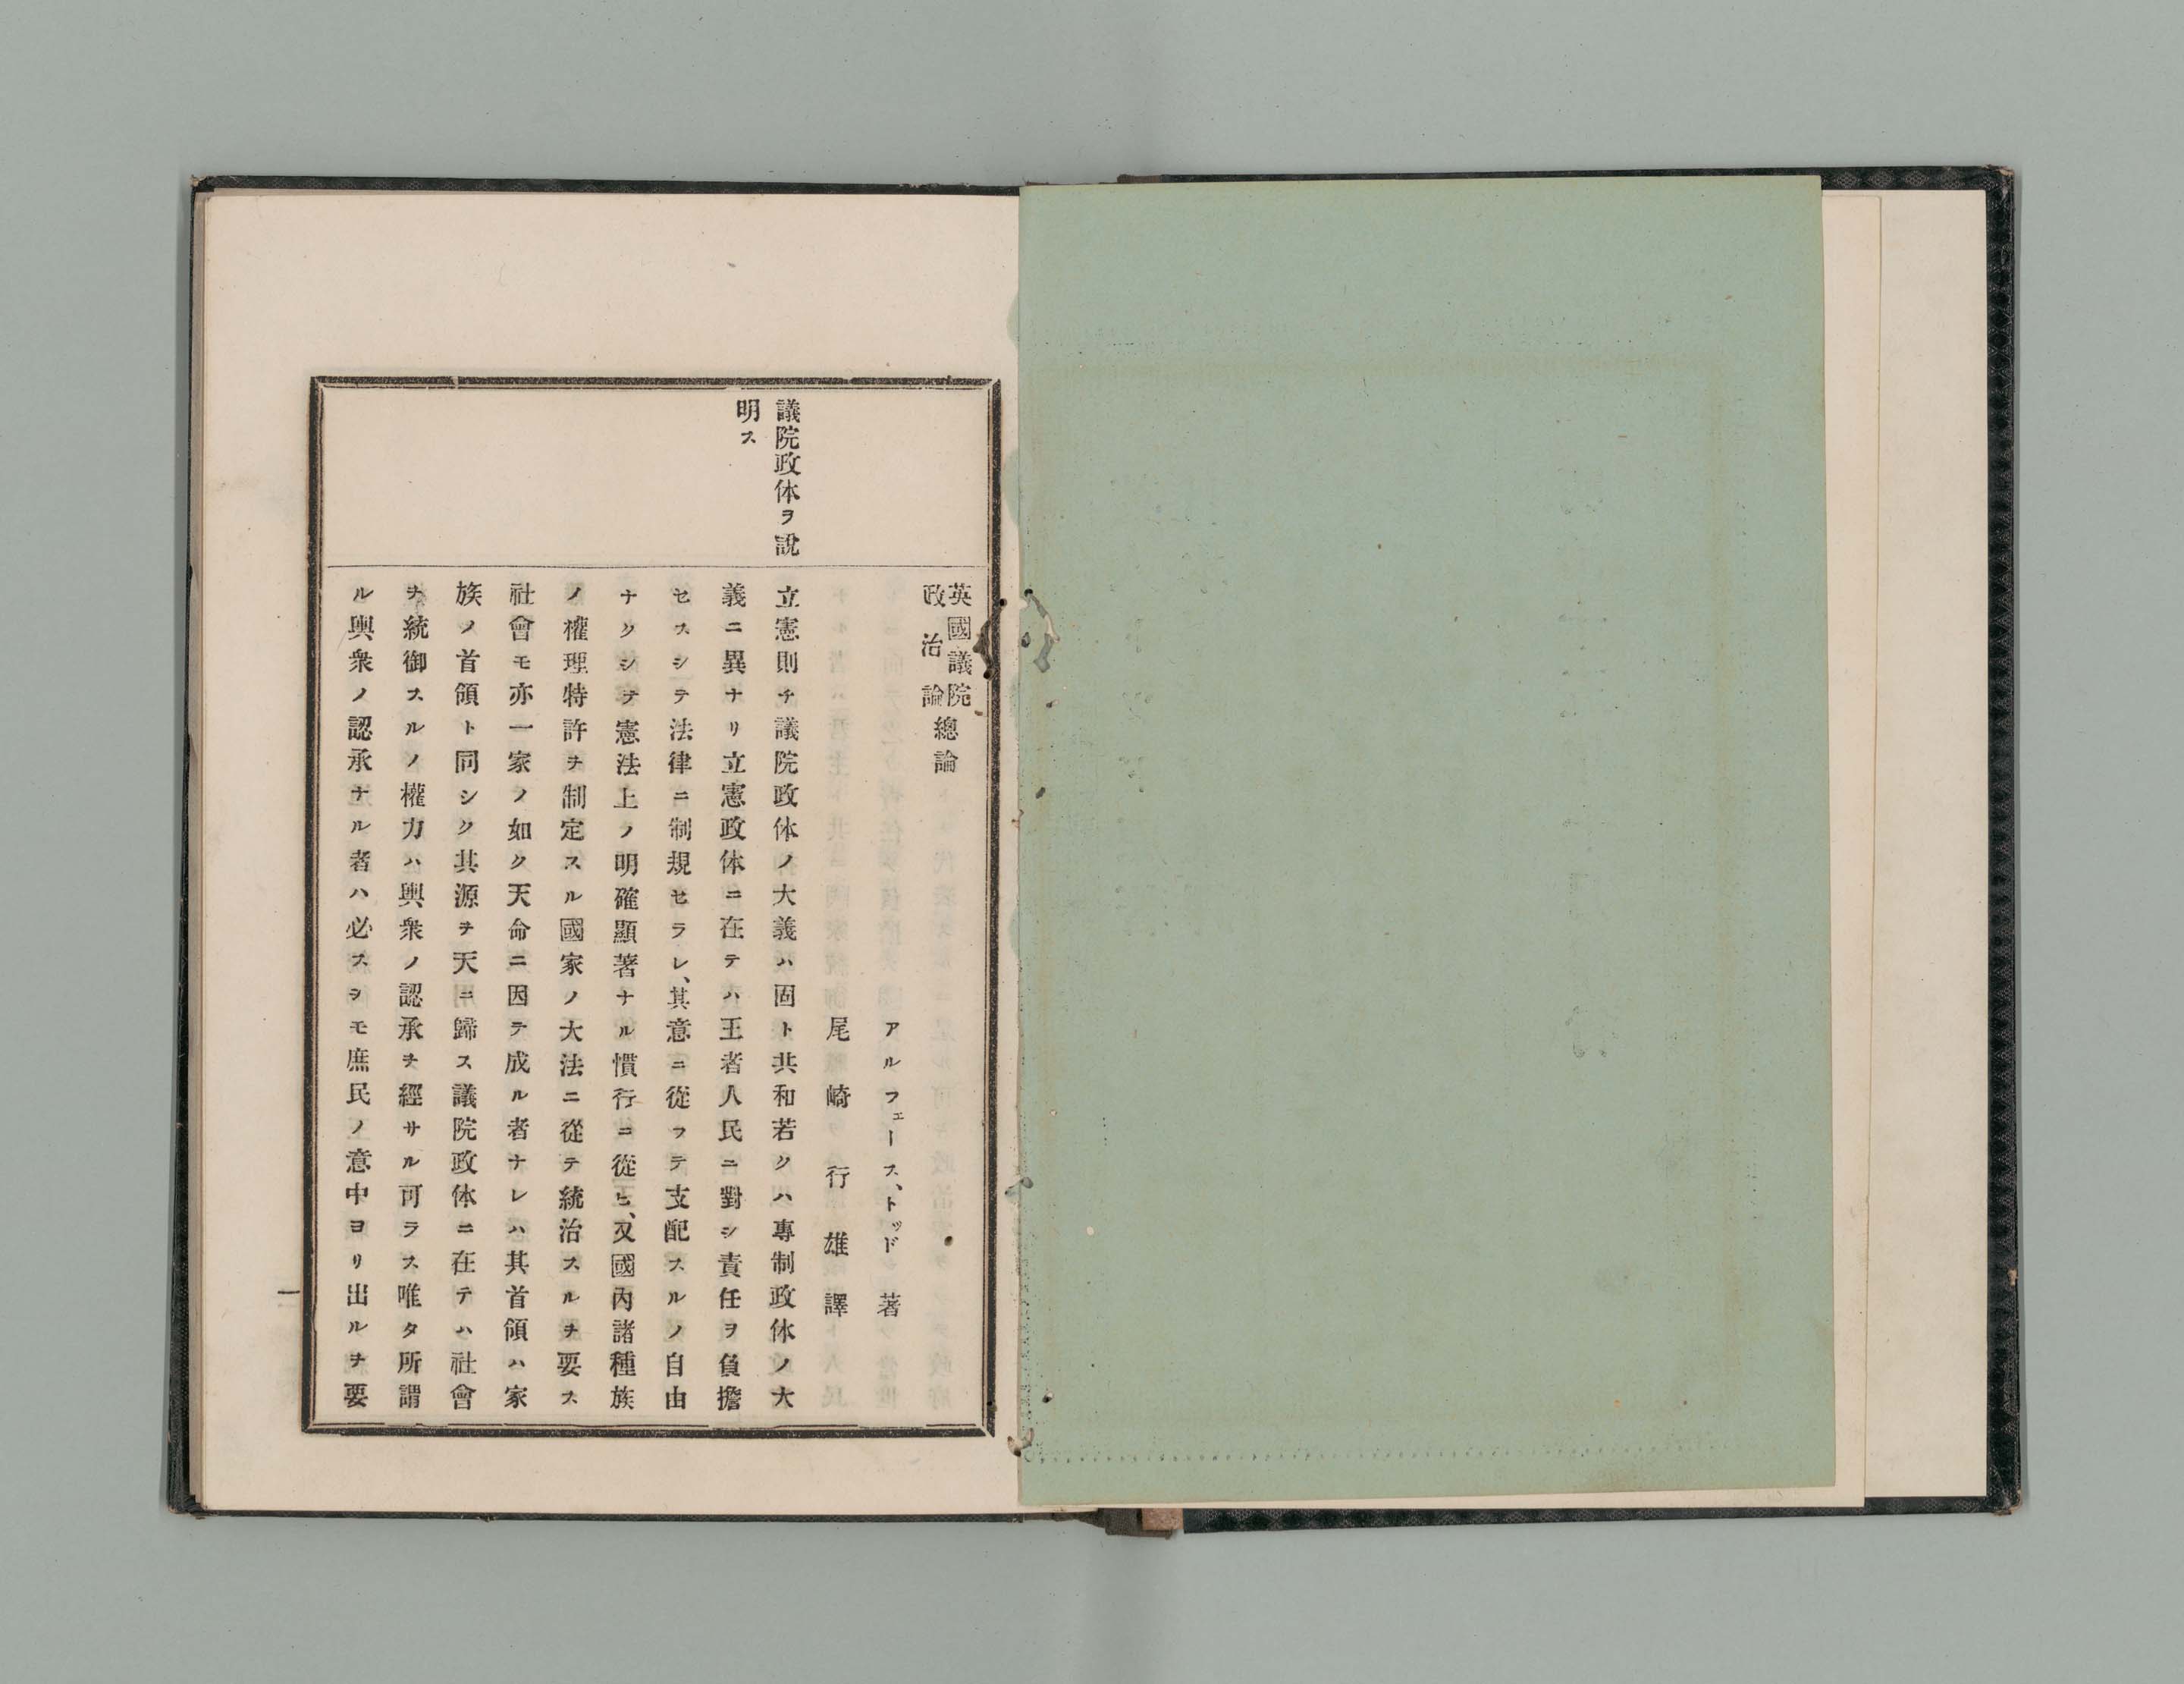 英國議院政治論 總論
アルフェース、トッド 著
尾崎行雄 譯
議院政体ヲ說
明ス
立憲則チ議院政体ノ大義ハ固ト共和若クハ專制政体ノ大
義ニ異ナリ立憲政体ニ在テハ王者人民ニ對シ責任ヲ負擔
セスシテ法律ニ制規セラレ、其意ニ從フテ支配スルノ自由
ナクシテ憲法上ノ明確顯著ナル慣行ニ從ヒ、又國內諸種族
ノ權理特許ヲ制定スル國家ノ大法ニ從テ統治スルヲ要ス
社會モ亦一家ノ如ク天命ニ因テ成ル者ナレハ其首領ハ家
族ノ首領ト同シク其源ヲ天ニ歸ス議院政体ニ在テハ社會
ヲ統御スルノ權力ハ輿衆ノ認承ヲ經サル可ラス唯タ所謂
ル輿衆ノ認承ナル者ハ必スヲモ庶民ノ意中ヨリ出ルヲ要
一